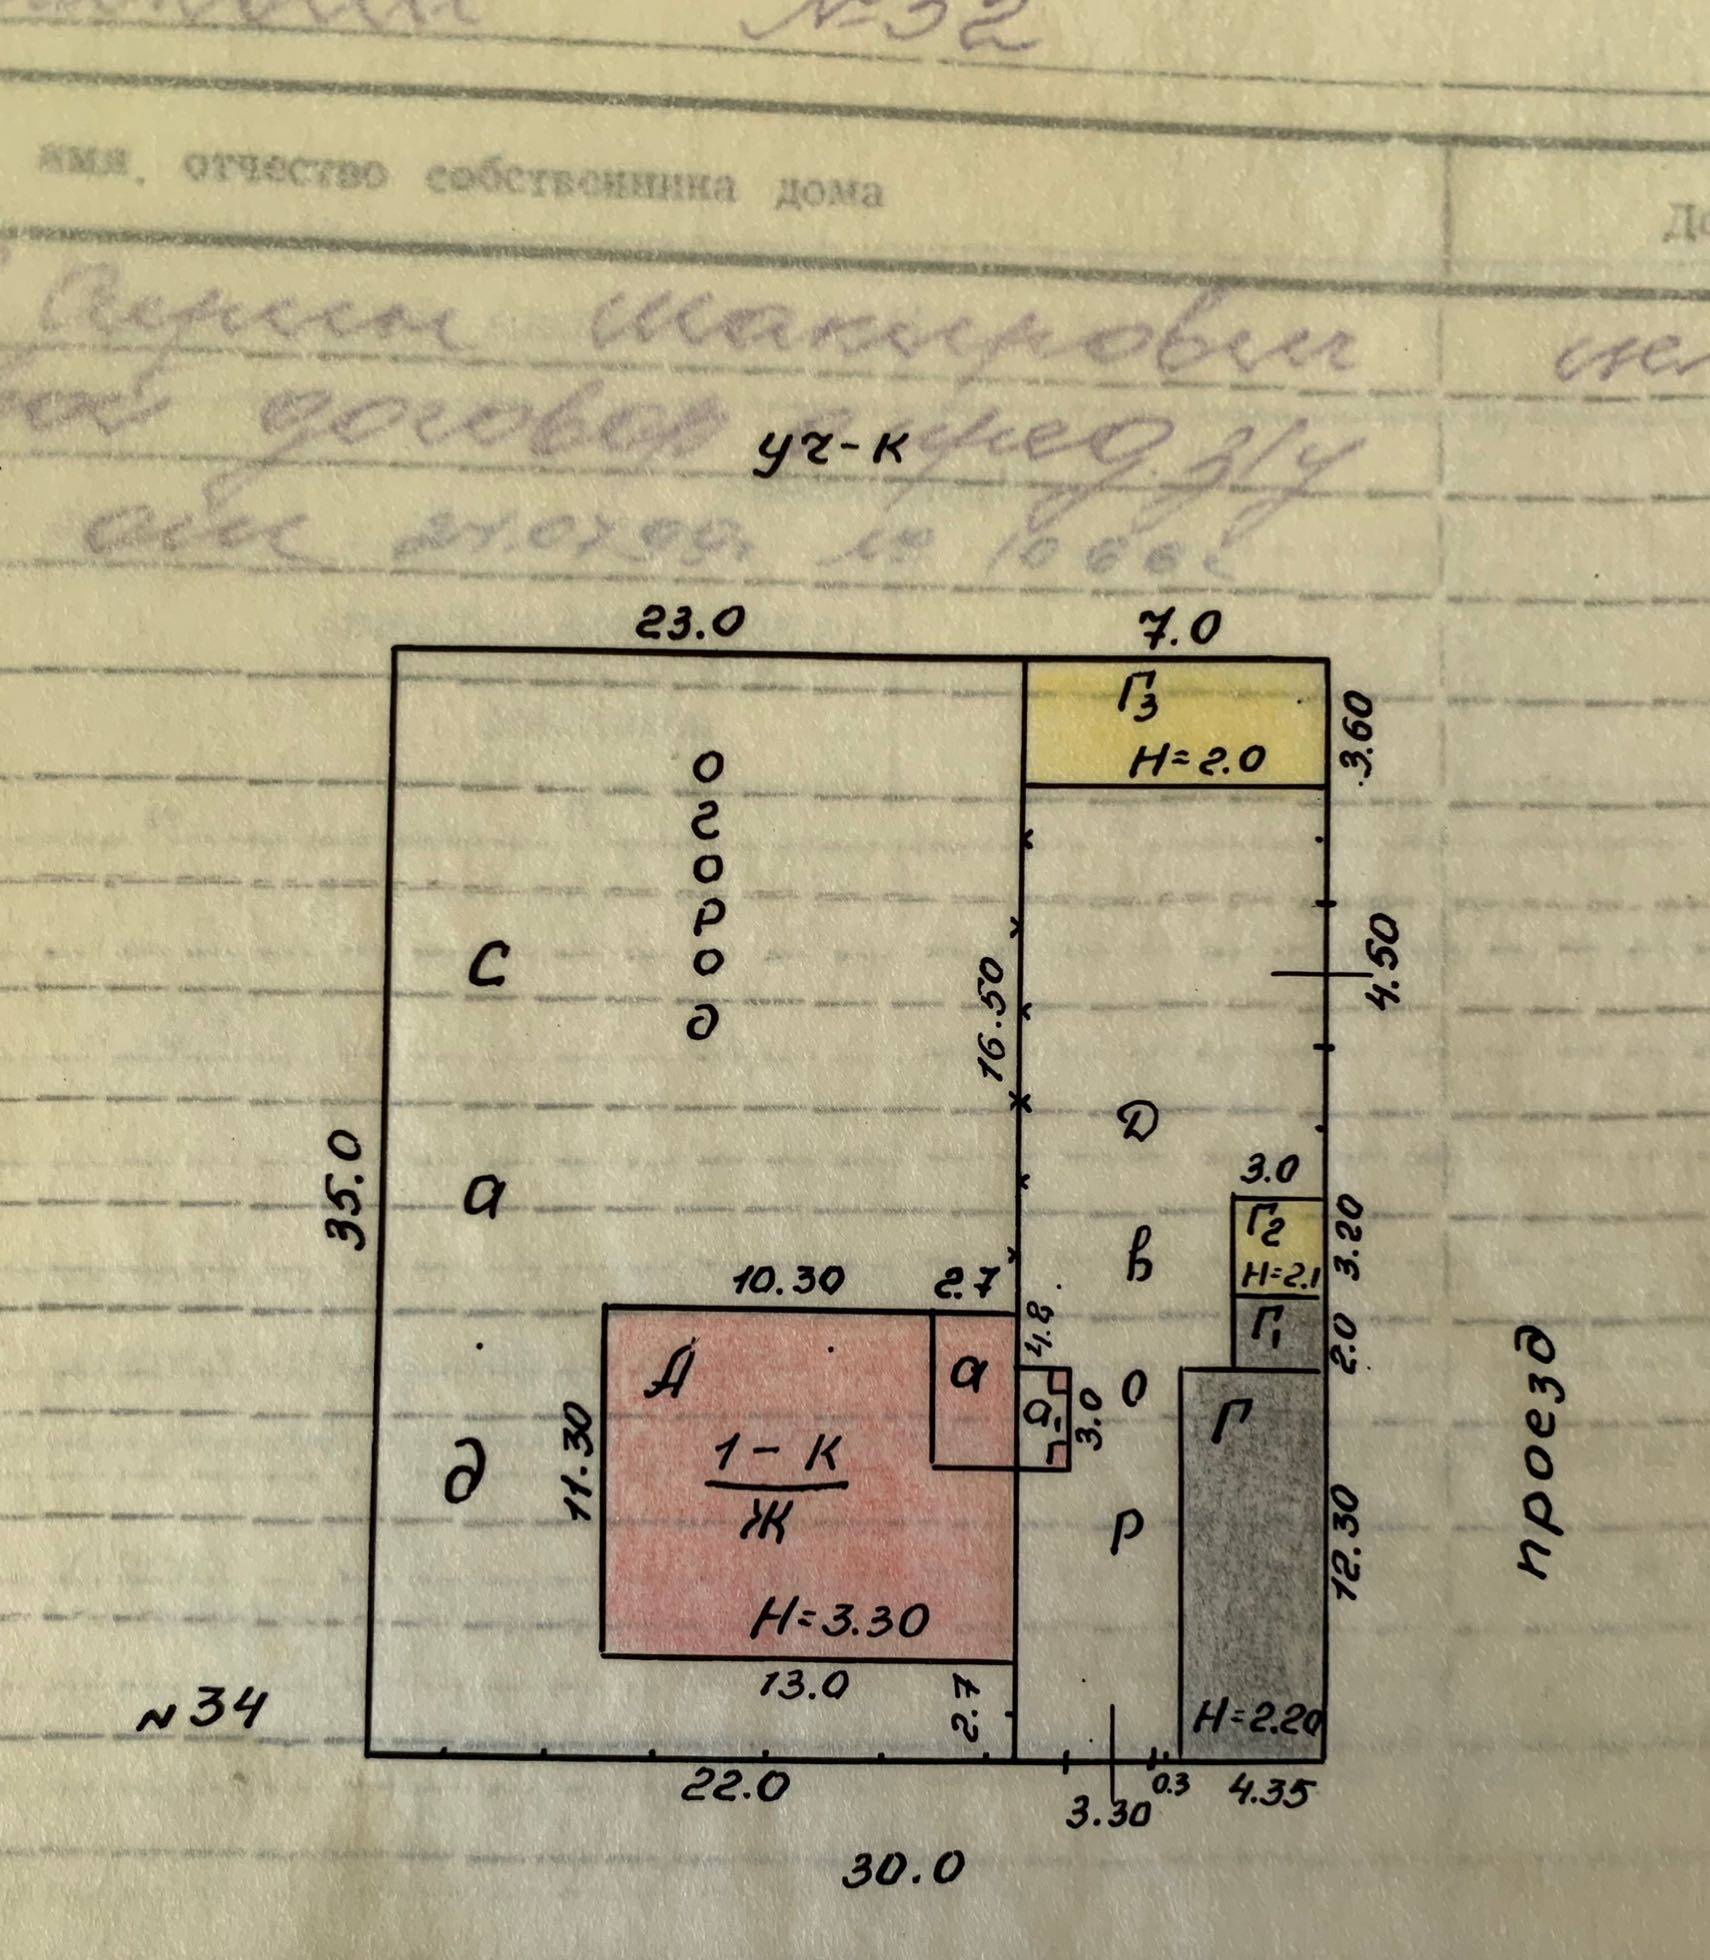 №32
имя, отчество собственника дома
Шакировы
договор
от 27.07.99г № 1066
уч-к
23.0
7.0
Г3
Н=2.0
3.60
огород
сад
4.50
16.50
35.0
двор
3.0
Г2
Н=2.1
3.20
Г1
2.0
10.30
2.7
4.8
А
а
а1
3.0
11.30
1-К
Ж
Н=3.30
Г
12.30
проезд
13.0
2.7
Н=2.20
№34
22.0
3.30
0.3
4.35
30.0